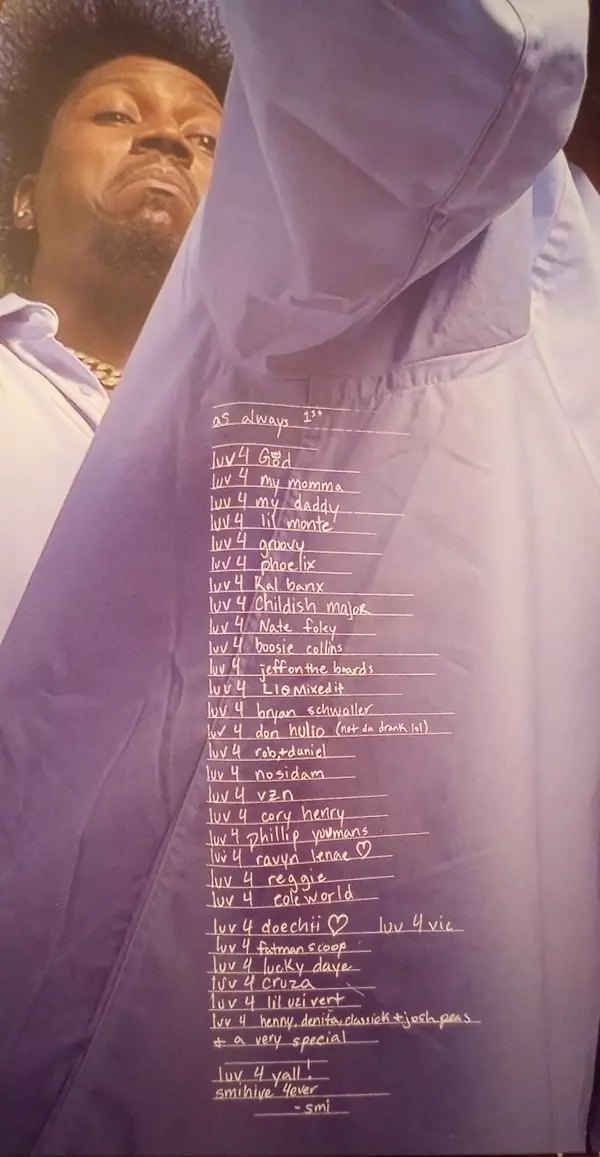 as always 1st
luv 4 God
luv 4 my momma
luv 4 my daddy
luv 4 lil monte
luv 4 groovy
luv 4 phoelix
luv 4 Kal banx
luv 4 Childish major
luv 4 Nate foley
luv 4 boosie collins
luv 4 jeffontheboards
luv 4 L10Mixedit
luv 4 bryan schwaller
luv 4 don hulio (not da drank lol)
luv 4 rob+daniel
luv 4 nosidam
luv 4 vzn
luv 4 cory henry
luv 4 phillip youmans
luv 4 ravyn lenae ♡
luv 4 reggie
luv 4 cole world
luv 4 doechii ♡ luv 4 vic
luv 4 fatman scoop
luv 4 lucky daye
luv 4 cruza
luv 4 lil uzi vert
luv 4 henny, denita, classick + josh peas
+ a very special
luv 4 yall!
smihive 4ever
- smi